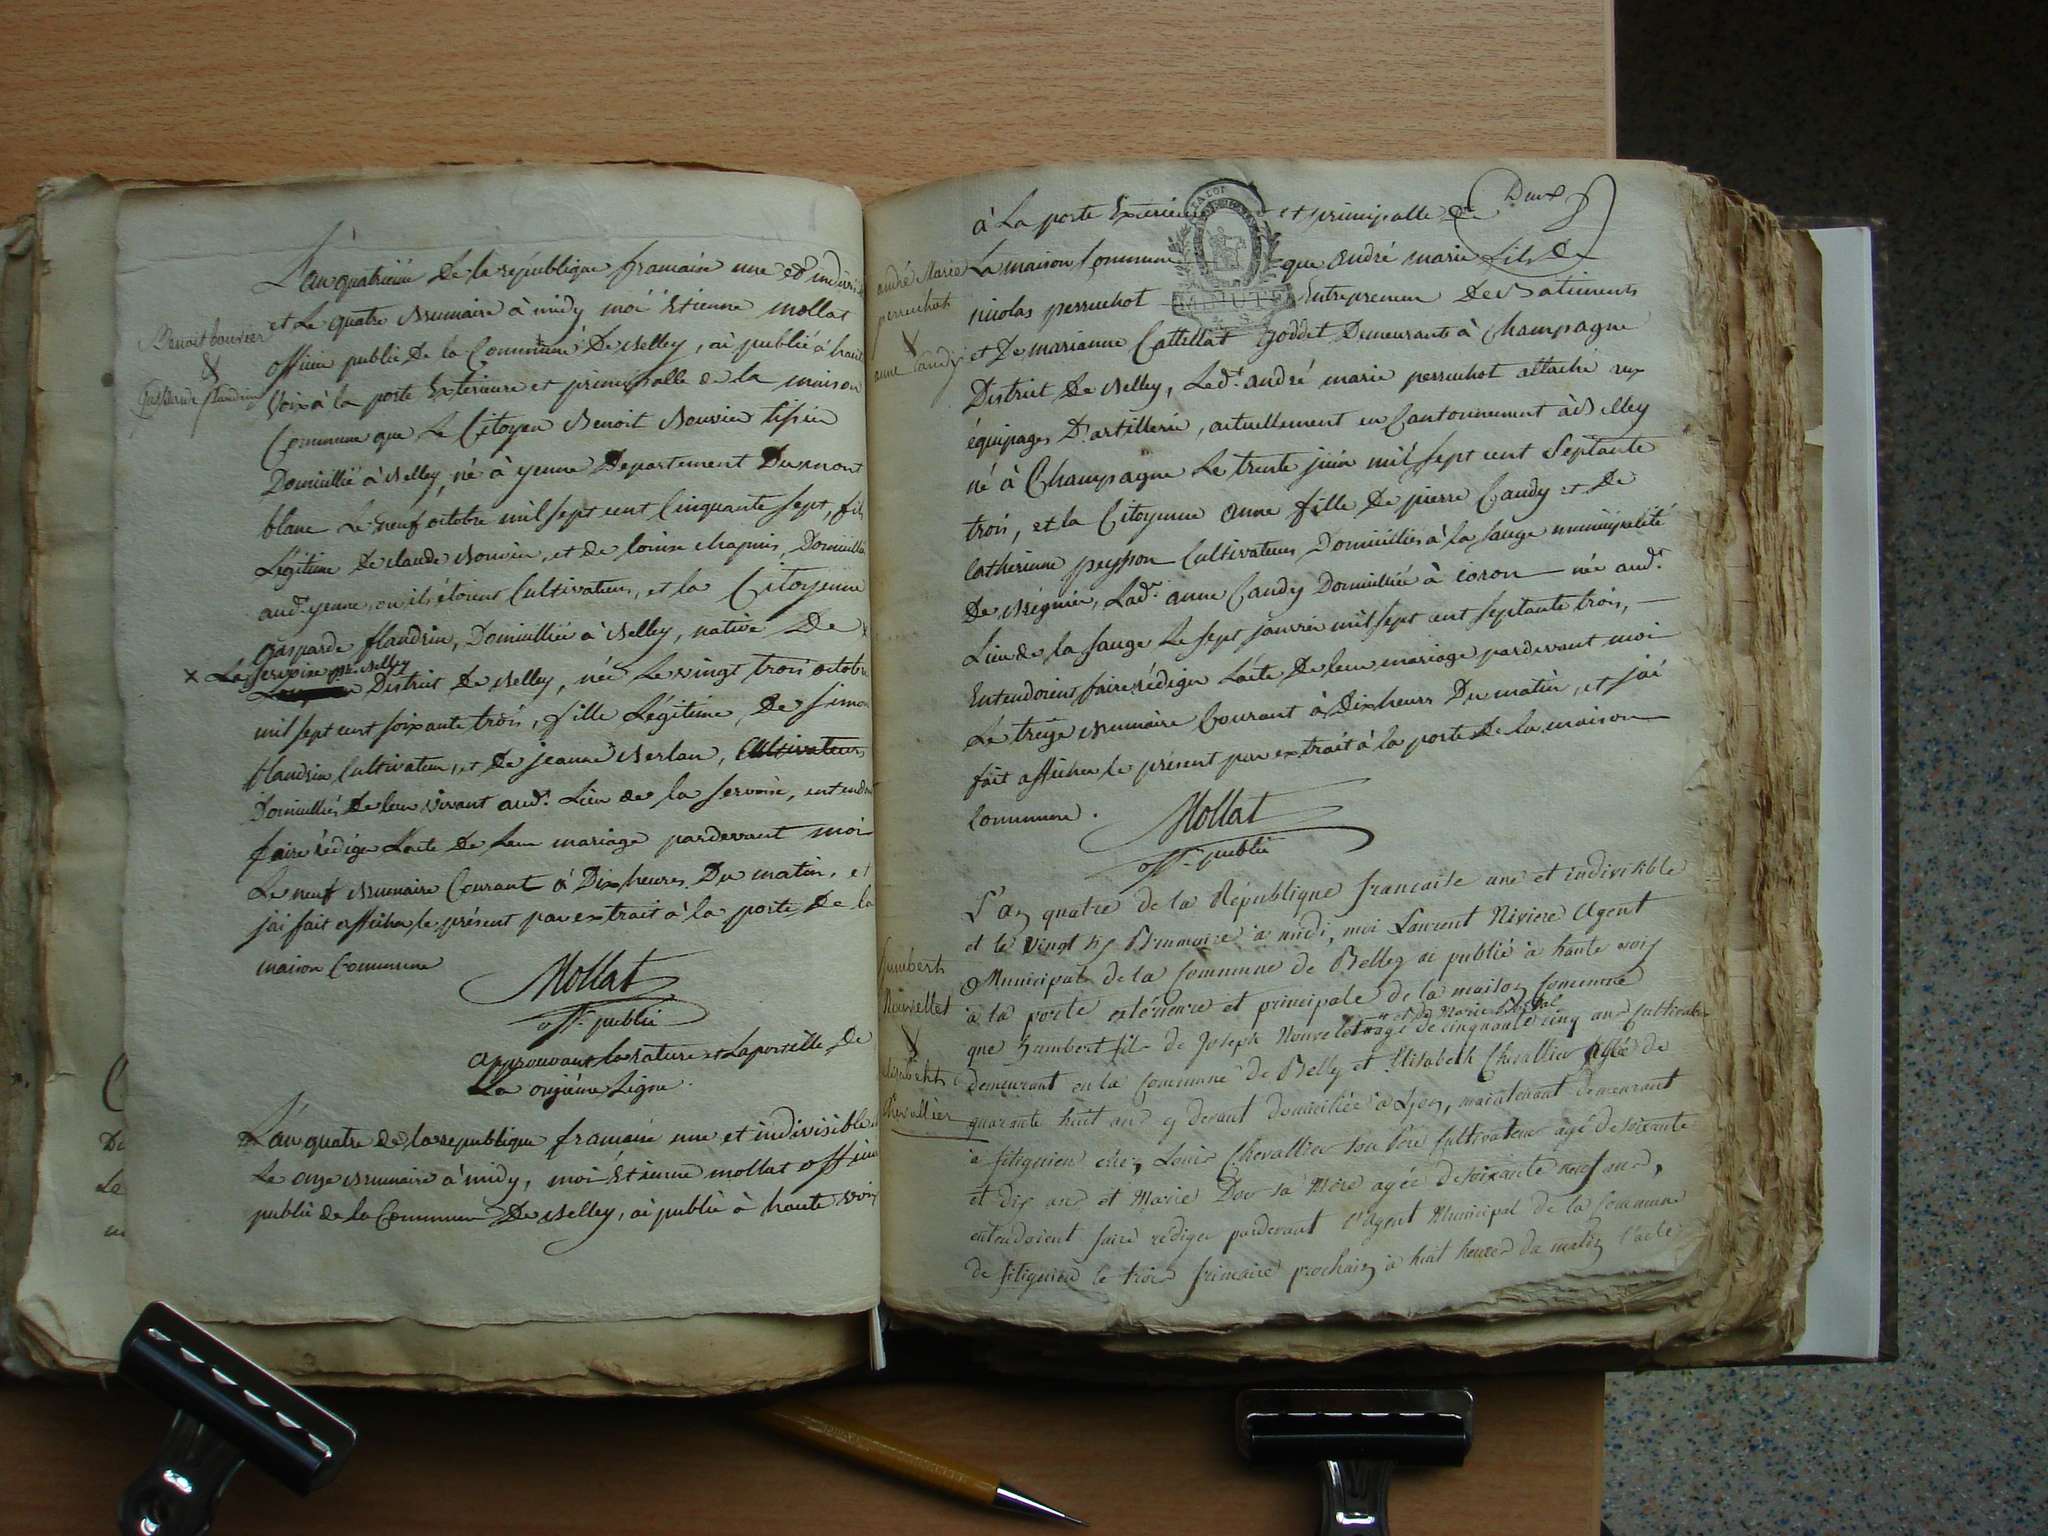 L'an quatrième de la république francaise une et indivisible
et Le quatre Brumaire à midy moi Etienne mollat
Benoit bouvier
&
Gasparde flandrin
officier public De la Commune De Belley, ai publié à haute
Voix à la porte Exterieure et principalle de la maison
Commune que Le Citoyen Benoit Bouvier
Domicillié à Belley, né à yenne Departement Du mont
blanc Le neuf octobre mil sept cent Cinquante sept, fils
Légitime De claude Bouvier, et de louise chapuis, Domicilliés
aud. yenne, où ils étoient Cultivateurs, et la Citoyenne
Gasparde flandrin, Domicilliée à Belley, native De
x La servoise près Belley
District De Belley, née Le vingt trois octobre
mil sept cent soixante trois, fille Légitime De Simon
flandrin Cultivateur, et De jeanne Berlan, Cultivateurs
Domicilliés De leur vivant aud. Lieu de la servoise, entendent
faire rédiger L'acte De Leur mariage pardevant moi
Le neuf Brumaire Courant à Dix heures Du matin, et
j'ai fait afficher le présent par extrait à la porte De la
maison Commune
Mollat
off. public
approuvant la rature et L'apostille de
La onzième Ligne.
L'an quatre de la republique francaise une et indivisible
Le onze Brumaire à midy, moi Etienne mollat officier
public de la Commune De Belley, ai publié à haute voix
à La porte Exterieure et principalle De
LA LOI
MINUTE
André Marie
perruchot
&
anne Candy
La maison Commune que André marie fils De
nicolas perruchot Entrepreneur De Batiments
et De marianne Cattellat Goddet Demeurants à Champagne
District De Belley, Led. andré marie perruchot attaché aux
équipages D'artillerie, actuellement en Cantonnement à Belley
né à Champagne Le trente juin mil sept cent Septante
trois, et la Citoyenne anne fille De pierre Candy et De
Catherinne peysson Cultivateurs Domicilliés à la sauge municipalité
De Brégnier, Lad. anne Candy Domicilliée à coron née aud.
Lieu de la sauge Le sept janvier mil sept cent septante trois,
Entendoient faire rédiger L'acte De leur mariage pardevant moi
Le treize Brumaire Courant à Dix heures Du matin, et j'ai
fait afficher le présent par extrait à la porte De la maison
Commune.
Mollat
off. public
L'an quatre de la République francaise une et indivisible
et le vingt six Brumaire à midi, moi Laurent Riviere Agent
humbert
Nouvellet
&
Elizabeth
Chevallier
Municipal de la Commune de Belley ai publié à haute voix
à la porte extérieure et principale de la maison Commune
et de Marie
que humbert fils de Joseph Nouvelet agé de cinquante cinq ans Cultivateur
demeurant en la Commune de Belley et Elisabeth Chevallier Agée de
quarante huit ans cy devant domiciliée à Lyon, maintenant demeurant
à fitignieu chez Louis Chevallier son Pere Cultivateur agé de soixante
et dix ans et Marie Dor sa Mere agée de soixante neuf ans,
entendoient faire rédiger pardevant l'Agent Municipal de la Commune
de fitignieu le trois frimaire prochain à huit heures du matin l'acte